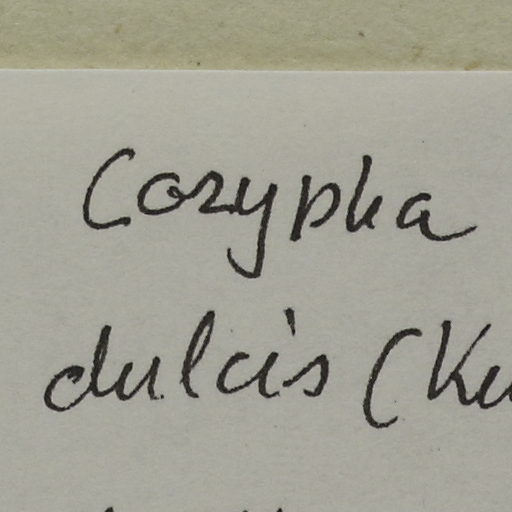 Corypha
dulcis (Ku